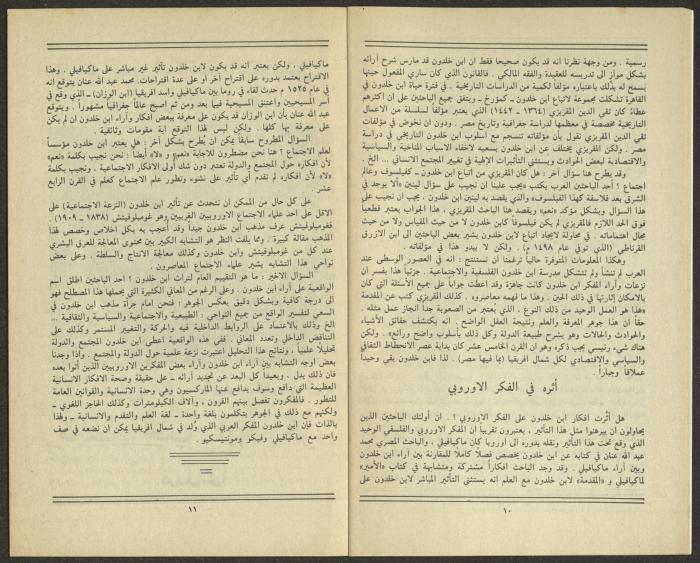 رسمية . ومن وجهة نظرنا انه قد يكون صحيحا فقط ان ابن خلدون قد مارس شرح آرائه
بشكل مواز الى تدريسه للعقيدة والفقه المالكي . فالقانون الذي كان ساري المفعول حينها
يسمح له بذلك باعتباره مؤلفاً لكمية من الدراسات التاريخية . في فترة حياة ابن خلدون في
القاهرة تشكلت مجموعة لاتباع ابن خلدون ـ كمؤرخ ـ ويتفق جميع الباحثين على ان اكثرهم
عطاءً كان تقي الدين المقريزي (١٣٦٤ ـ ١٤٤٢) الذي يعتبر مؤلفاً لسلسلة من الاعمال
التاريخية مخصصة في معظمها لدراسة جغرافية وتاريخ مصر . ودون ان نخوض في مؤلفات
تقي الدين المقريزي نقول بأن مؤلفاته تنسجم مع اسلوب ابن خلدون التاريخي في دراسة
مصر . ولكن المقريزي يختلف عن ابن خلدون بسعيه لاخفاء الاسباب المناخية والسياسية
والاقتصادية لبعض الحوادث ويستثني التأثيرات الالهية في تغيير المجتمع الانساني ... الخ .
وقد يطرح هنا سؤال آخر : هل كان المقريزي من اتباع ابن خلدون ـ كفيلسوف وعالم
اجتماع ؟ أحد الباحثين العرب يكتب «يجب علينا ان نجيب على سؤال لينين «ألا يوجد في
الشرق بعد فلاسفة كهذا الفيلسوف» والذي يقصد به لينين ابن خلدون ، يجب ان نجيب على
هذا السؤال وبشكل مؤكد «نعم» ويقصد هنا الباحث المقريزي ، هذا الجواب يعتبر قطعياً
فوق الحد اللازم فالمقريزي لم يكن فيلسوفاً كابن خلدون لا من حيث المقياس ولا من حيث
مجال اهتماماته . في محاولة لايجاد اتباع لابن خلدون يشير بعض الباحثين الى ابن الازرق
القرناطي (الذي توفي عام ١٤٩٨ م) . ولكن لا يبدو هذا في مؤلفاته .
وهكذا المعلومات المتوفرة حالياً ترغمنا ان نستنتج : انه في العصور الوسطى عند
العرب لم تنشأ ولم تتشكل مدرسة ابن خلدون الفلسفية والاجتماعية . جزئياً هذا يفسر ان
نزعات وآراء المفكر ابن خلدون كانت جاهزة وقد اعطت جواباً على جميع الأسئلة التي كان
بالامكان إثارتها في ذلك الحين . وهذا ما فهمه معاصروه . كذلك المقريزي كتب عن المقدمة
«هذا هو العمل الوحيد من ذلك النوع ، الذي يعتبر من الصعوبة جداً انجاز عمل مثله .
حقاً ان هذا جوهر المعرفة والعلم ونتيجة العقل الواضح . انه يكتشف حقائق الأشياء
والحوادث والحالات وهو يشرح طبيعة الدولة وكل ذلك بأسلوب واضح ورائع» . ولكن
هناك شيء رئيسي يجب ذكره وهو ان القرن الخامس عشر كان بداية عصر الانحطاط الثقافي
والسياسي والاقتصادي لكل شمال افريقيا (بما فيها مصر) . لذا فابن خلدون بقي وحيداً
عملاقاً وجباراً .
أثره في الفكر الاوروبي
هل أثرت افكار ابن خلدون على الفكر الاوروبي ؟ . ان أولئك الباحثين الذين
يحاولون ان يبرهنوا مثل هذا التأثير ، يعتبرون تقريباً ان المفكر الاوروبي والفلسفي الوحيد
الذي وقع تحت هذا التأثير ونقله بدوره الى اوروبا كان ماكيافيلي ، والباحث المصري محمد
عبد الله عنان في كتابه عن ابن خلدون يخصص فصلاً كاملاً للمقارنة بين آراء ابن خلدون
وبين آراء ماكيافيلي . وقد وجد الباحث افكاراً مشتركة ومتشابهة في كتاب «الأمير»
لماكيافيلي و «المقدمة» لابن خلدون مع العلم انه يستثني التأثير المباشر لابن خلدون على
١٠
ماكيافيلي ، ولكن يعتبر انه قد يكون لابن خلدون تأثير غير مباشر على ماكيافيلي . وهذا
الاقتراح يعتمد بدوره على اقتراح آخر أو على عدة اقتراحات. محمد عبد الله عنان يتوقع انه
في عام ١٥٢٥ م حدث لقاء في روما بين ماكيافيلي واسد افريقيا (ابن الوزان) ـ الذي وقع في
أسر المسيحيين واعتنق المسيحية فيما بعد ومن ثم اصبح عالماً جغرافياً مشهوراً . ويتوقع
عبد الله عنان بأن ابن الوزان قد يكون على معرفة ببعض أفكار وآراء ابن خلدون ان لم يكن
على معرفة بها كلها . ولكن ليس لهذا التوقع اية مقومات وثائقية .
السؤال المطروح سابقاً يمكن ان يُطرح بشكل آخر : هل يعتبر ابن خلدون مؤسساً
لعلم الاجتماع ؟ هنا نحن مضطرون للاجابة «نعم» و «لا» أيضاً : نحن نجيب بكلمة «نعم»
لأن افكاره حول المجتمع والدولة تعتبر دون شك أولى الافكار الاجتماعية ، ونجيب بكلمة
«لا» لأن افكاره لم تقدم أي تأثير على نشوء وتطور علم الاجتماع كعلم في القرن الرابع
عشر .
على كل حال من الممكن ان نتحدث عن تأثير ابن خلدون (النزعة الاجتماعية) على
الاقل على احد علماء الاجتماع الاوروبيين الغربيين وهو غوميلوفيتش (١٨٣٨ ـ ١٩٠٩) .
فغوميلوفيتش عرف مذهب ابن خلدون جيداً وقد أعجب به بكل اخلاص وخصص لهذا
المذهب مقالة كبيرة . ومما يلفت النظر هو التشابه الكبير بين محتوى المعالجة للعرق البشري
عند كل من غوميلوفيتش وابن خلدون وكذلك معالجة الانتاج والسلطة . وعلى بعض
نواحي هذا التشابه يشير علماء الاجتماع المعاصرون .
السؤال الأخير : ما هو التقييم العام لتراث ابن خلدون ؟ احد الباحثين اطلق اسم
الواقعية على آراء ابن خلدون . وعلى الرغم من المعاني الكثيرة التي يحملها هذا المصطلح فهو
الى درجة كافية وبشكل دقيق يعكس الجوهر : فنحن امام جرأة مذهب ابن خلدون في
السعي لتفسير الواقع من جميع النواحي : الطبيعية والاجتماعية والسياسية والثقافية ...
الخ وذلك بالاعتماد على الروابط الداخلية فيه والحركة والتغيير المستمر وكذلك على
التناقض الداخلي وتعدد المعاني . ففي هذه الواقعية أعطى ابن خلدون المجتمع والدولة
تحليلاً علمياً ، ونتائج هذا التحليل اعتبرت نزعة علمية حول الدولة والمجتمع . واذا وجدنا
بعض أوجه التشابه بين آراء ابن خلدون وآراء بعض المفكرين الاوروبيين الذين أتوا بعده
فان ذلك يدل ، وبعيداً كل البعد عن تمجيد آرائه ـ على حقيقة وصحة الافكار الانسانية
العظيمة التي دافع وسوف يدافع عنها الماركسيون وهي وحدة الانسانية والقوانين العامة
للتطور . فالمفكرون تفصل بينهم القرون ، وآلاف الكيلومترات وكذلك الحاجز اللغوي ـ
ولكنهم مع ذلك في الجوهر يتكلمون بلغة واحدة ـ لغة العلم والتقدم والانسانية ـ ولهذا
بالذات فإن ابن خلدون المفكر العربي الذي وُلد في شمال افريقيا يمكن ان نضعه في صف
واحد مع ماكيافيلي وفيكو ومونتيسكيو .
١١